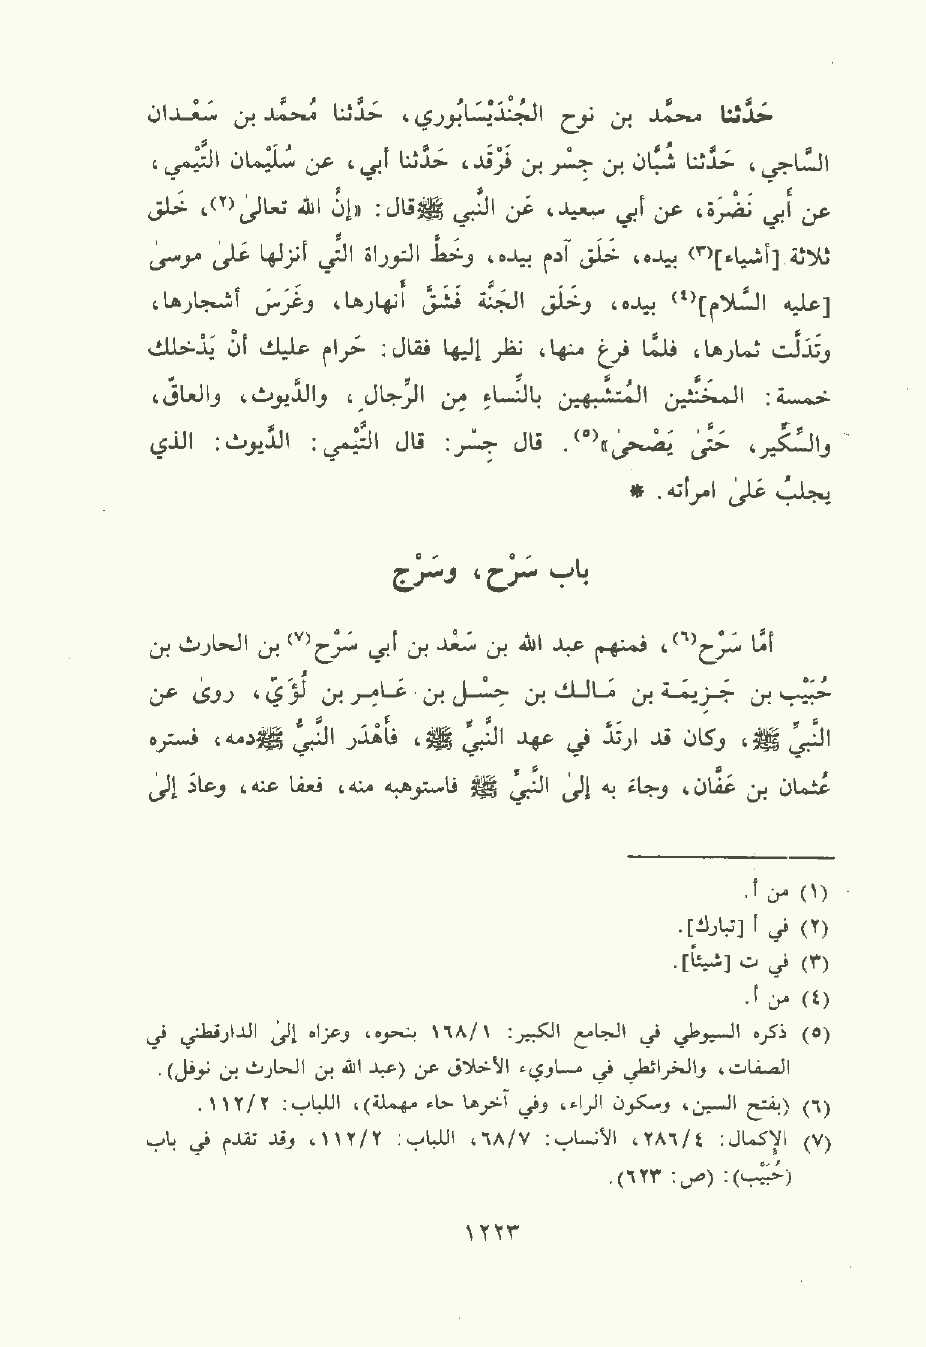 حَدَّثنا محمَّد بن نوح الجُنْدَيْسَابُوري، حَدَّثنا مُحمَّد بن سَعْـدان
السَّاجي، حَدَّثنا شَبَّان بن جِسْر بن فَرْقَد، حَدَّثنا أبي، عن سُلَيْمان التَّيْمي،
عن أبي نَضْرَة، عن أبي سعيد، عَن النَّبي ﷺ قال: «إنَّ الله تعالىٰ(٢)، خلق
ثلاثة [أشياء](٣) بيده، خَلَق آدم بيده، وخَطَّ التوراة الَّتي أنزلها عَلىٰ موسىٰ
[عليه السَّلام](٤) بيده، وخَلَق الجَنَّة فَشَقَّ أنهارها، وغَرَسَ أشجارها،
وتَدَلَّت ثمارها، فلمَّا فرغ منها، نظر إليها فقال: حَرام عليك أنْ يَدْخلك
خمسة: المخنَّثين المُتشَّبهين بالنِّساءِ من الرِّجالِ، والدَّيوث، والعاقّ،
والسِّكِّير، حَتَّىٰ يَصْحىٰ»(٥). قال جِسْر: قال التَّيْمي: الدَّيوث: الذي
يجلبُ عَلىٰ امرأته. *
باب سَرْح، وسَرْج
أمَّا سَرْح(٦)، فمنهم عبد الله بن سَعْد بن أبي سَرْح(٧) بن الحارث بن
حُبَيّب بن جَـذِيـمَـة بن مَـالــك بن حِسْــل بن عَـامِـر بن لُؤَيّ، روىٰ عن
النَّبيِّ ﷺ، وكان قد ارتَدَّ في عهد النَّبيِّ ﷺ، فأَهْدَر النَّبيُّ ﷺ دمه، فستره
عُثمان بن عَفَّان، وجاءَ به إلىٰ النَّبيِّ ﷺ فاستوهبه منه، فعفا عنه، وعادَ إلىٰ
(١) من أ.
(٢) في أ [تبارك].
(٣) في ت [شيئاً].
(٤) من أ.
(٥) ذكره السيوطي في الجامع الكبير: ١٦٨/١ بنحوه، وعزاه إلىٰ الدارقطني في
الصفات، والخرائطي في مساوىء الأخلاق عن (عبد الله بن الحارث بن نوفل).
(٦) (بفتح السين، وسكون الراء، وفي آخرها حاء مهملة)، اللباب: ١١٢/٢.
(٧) الإكمال: ٢٨٦/٤، الأنساب: ٦٨/٧، اللباب: ١١٢/٢، وقد تقدم في باب
(حُبَيّب): (ص: ٦٢٣).
١٢٢٣